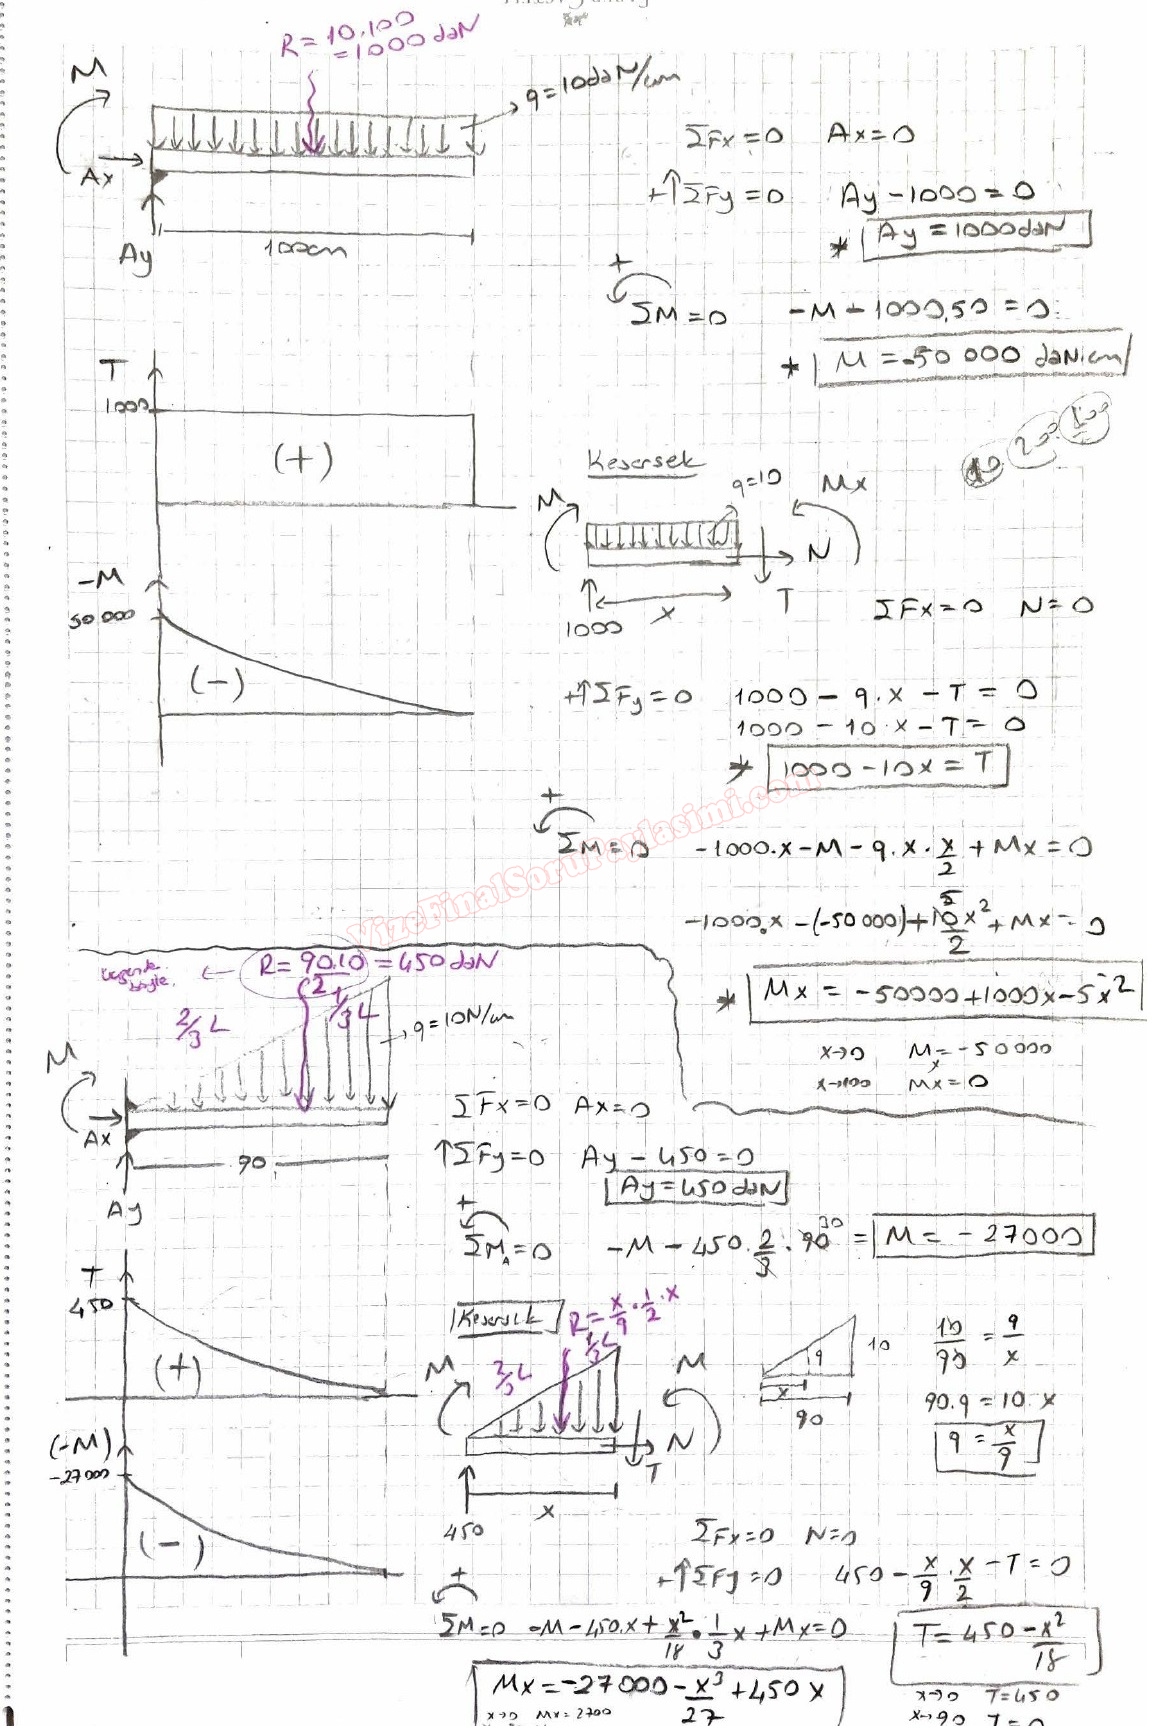 R = 10.100
= 1000 daN
M
q = 10 daN/cm
Ax
Ay
100cm
ΣFx = 0 Ax = 0
+↑ΣFy = 0 Ay - 1000 = 0
* Ay = 1000 daN
+
ΣM = 0 -M - 1000.50 = 0
* M = -50 000 daN.cm
T
1000
(+)
-M
50 000
(-)
Kesersek
10 200 100
M q=10 Mx
N
T
x
1000
ΣFx = 0 N = 0
+↑ΣFy = 0 1000 - q.x - T = 0
1000 - 10.x - T = 0
* 1000 - 10x = T
+
ΣM = 0 -1000.x - M - q.x.x/2 + Mx = 0
-1000.x - (-50 000) + 10x²/2 + Mx = 0
5
* Mx = -50000 + 1000x - 5x²
x→0 Mx = -50 000
x→100 Mx = 0
VizeFinalSoruPaylasimi.com
R = 90.10/2 = 450 daN
2/3 L 1/3 L
q = 10 N/cm
M
Ax
90
Ay
ΣFx = 0 Ax = 0
↑ΣFy = 0 Ay - 450 = 0
Ay = 450 daN
+
ΣMA = 0 -M - 450.2/3.90 = M = -27000
30
T
450
(+)
(-M)
-27000
(-)
Kesersek
R = x/9.1/2.x
2/3 L 1/3 L
M M
N
T
x
450
q
10
x
90
10/90 = q/x
90.q = 10.x
q = x/9
ΣFx = 0 N = 0
+↑ΣFy = 0 450 - x/9.x/2 - T = 0
T = 450 - x²/18
x→0 T = 450
x→90 T = 0
+
ΣM = 0 -M - 450.x + x²/18.1/3x + Mx = 0
Mx = -27000 - x³/27 + 450x
x→0 Mx = 2700